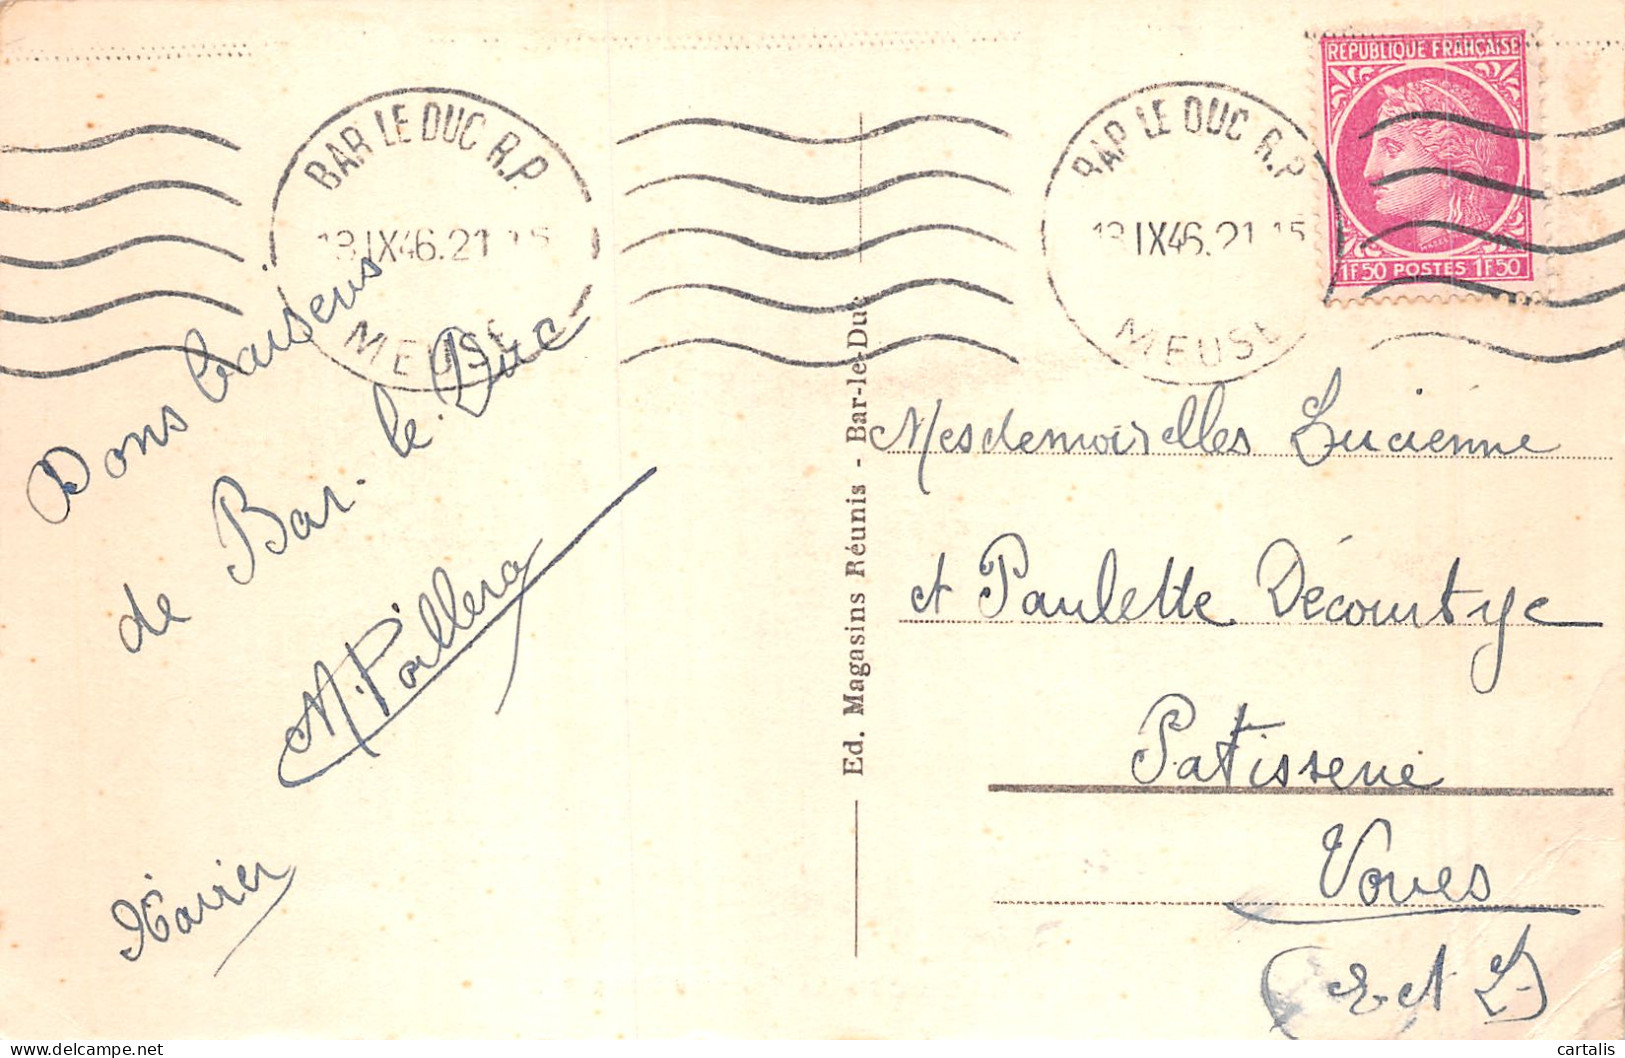 BAR LE DUC R.P.
18.IX46.21 15
MEUSE
BAR LE DUC R.P.
18.IX46.21 15
MEUSE
REPUBLIQUE FRANÇAISE
1F50 POSTES 1F50
Bons baisers
de Bar-le-Duc
Xavier
Ed. Magasins Réunis - Bar-le-Duc
Mesdemoiselles Lucienne
et Paulette
Patisserie
Voves
(E-et L)
cartalis